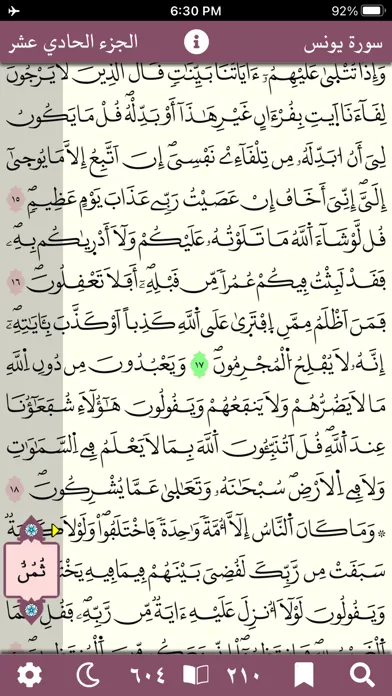 6:30 PM 92%
سورة يونس الجزء الحادي عشر
وَإِذَا تُتْلَىٰ عَلَيْهِمُۥٓ ءَايَاتُنَا بَيِّنَٰتٖ قَالَ اَلذِينَ لَا يَرْجُونَ
لِقَآءَنَا اَيتِ بِقُرْءَانٍ غَيْرِ هَٰذَآ أَوْ بَدِّلْهُۖ قُلْ مَا يَكُونُ
لِيَ أَنُ ابَدِّلَهُۥ مِن تِلْقَآءِےْ نَفْسِيَۖ إِنَ اَتَّبِعُ إِلَّا مَا يُوحَىٰٓ
إِلَيَّۖ إِنِّيَ أَخَافُ إِنْ عَصَيْتُ رَبِّے عَذَابَ يَوْمٍ عَظِيمٖۖ ١٥
قُل لَّوْ شَآءَ اَللَّهُ مَا تَلَوْتُهُۥ عَلَيْكُمْ وَلَآ أَدْر۪يٰكُم بِهِۦۖ
فَقَدْ لَبِثْتُ فِيكُمْ عُمُراٗ مِّن قَبْلِهِۦٓۖ أَفَلَا تَعْقِلُونَۖ ١٦
فَمَنَ اَظْلَمُ مِمَّنِ اِفْتَر۪يٰ عَلَى اَللَّهِ كَذِباً اَوْ كَذَّبَ بِـَٔايَٰتِهِۦٓۖ
إِنَّهُۥ لَا يُفْلِحُ اُلْمُجْرِمُونَۖ ١٧ وَيَعْبُدُونَ مِن دُونِ اِللَّهِ
مَا لَا يَضُرُّهُمْ وَلَا يَنفَعُهُمْ وَيَقُولُونَ هَٰٓؤُلَآءِ شُفَعَٰٓؤُنَا
عِندَ اَللَّهِۖ قُلَ اَتُنَبِّـُٔونَ اَللَّهَ بِمَا لَا يَعْلَمُ فِے اِلسَّمَٰوَٰتِ
وَلَا فِے اِلَارْضِۖ سُبْحَٰنَهُۥ وَتَعَٰلَىٰ عَمَّا يُشْرِكُونَۖ ١٨
۞ وَمَا كَانَ اَلنَّاسُ إِلَّآ أُمَّةٗ وَٰحِدَةٗ فَاخْتَلَفُواْۖ وَلَوْلَا كَلِمَةٞ
سَبَقَتْ مِن رَّبِّكَ لَقُضِيَ بَيْنَهُمْ فِيمَا فِيهِ
ثُمُنٌ
وَيَقُولُونَ لَوْلَآ أُنزِلَ عَلَيْهِ ءَايَةٞ مِّن رَّبِّهِۦۖ فَقُلِ
٦٠٤ ٢١٠